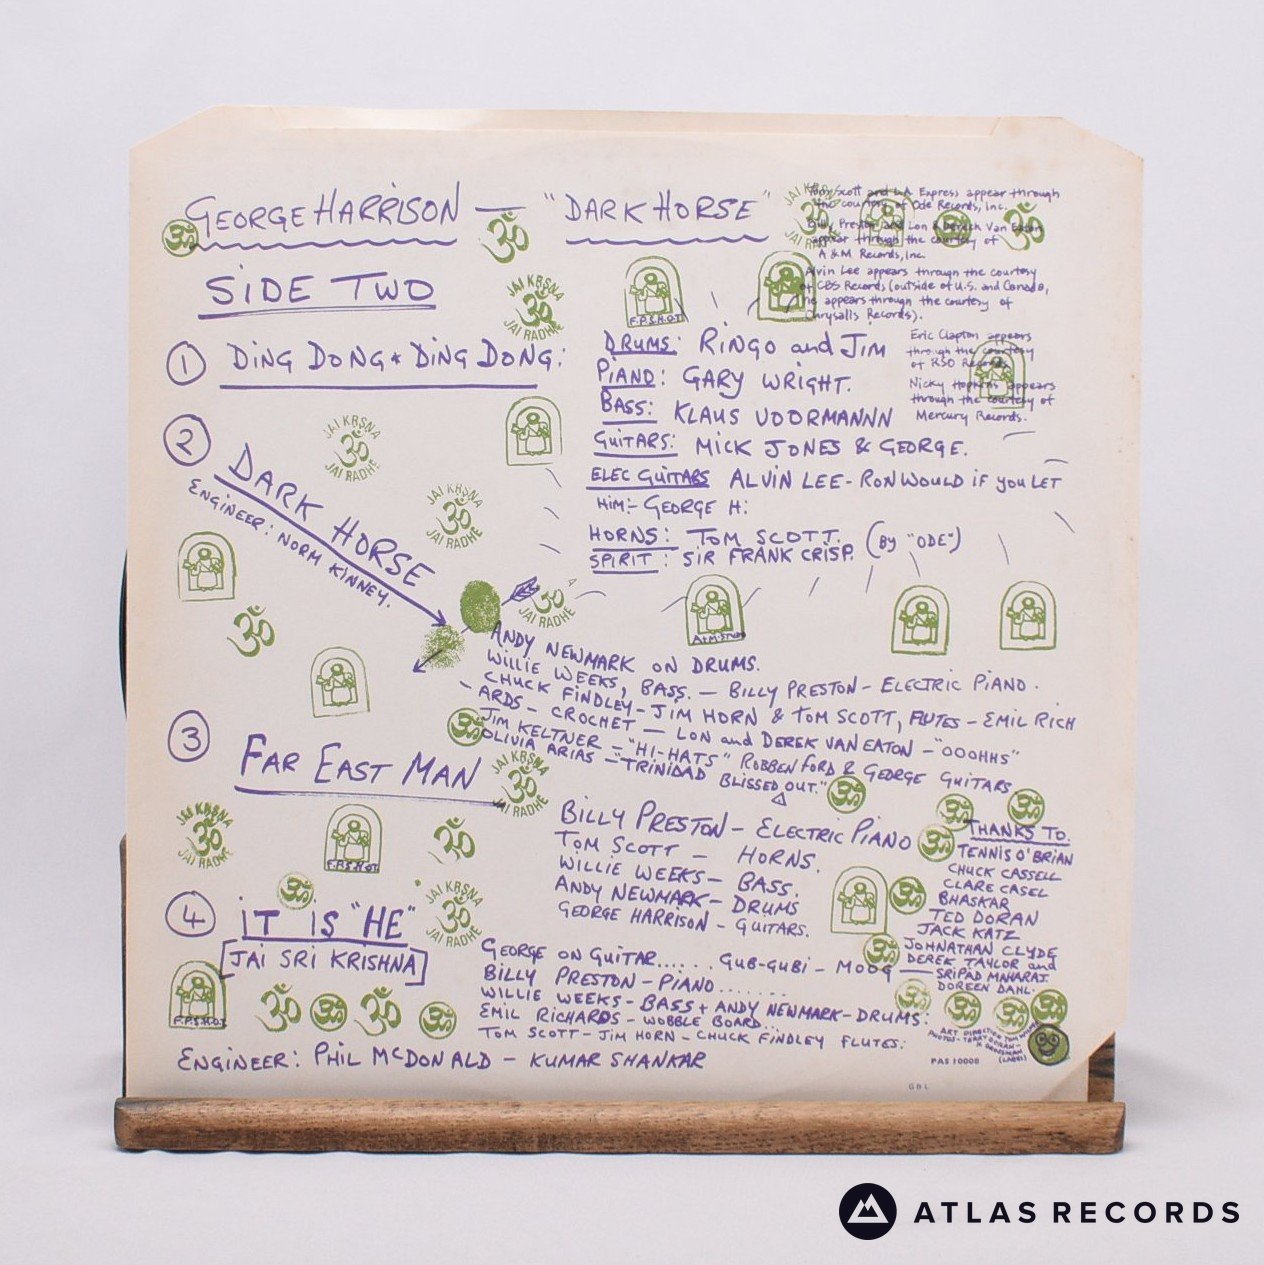 GEORGE HARRISON — "DARK HORSE"
SIDE TWO
Tom Scott and L.A. Express appear through
the courtesy of Ode Records, Inc.
Billy Preston and Lon & Derrek Van Eaton
appear through the courtesy of
A & M Records, Inc.
Alvin Lee appears through the courtesy
of CBS Records (outside of U.S. and Canada,
he appears through the courtesy of
Chrysalls Records).
Eric Clapton appears
through the courtesy
of RSO Records
Nicky Hopkins appears
through the courtesy of
Mercury Records.
① DING DONG * DING DONG:
DRUMS: RINGO and JIM
PIANO: GARY WRIGHT.
BASS: KLAUS VOORMANNN
GUITARS: MICK JONES & GEORGE.
ELEC GUITARS ALVIN LEE - RON WOULD IF YOU LET
HIM:- GEORGE H:
HORNS: TOM SCOTT. (BY "ODE")
SPIRIT: SIR FRANK CRISP.
② DARK HORSE
ENGINEER: NORM KINNEY.
ANDY NEWMARK ON DRUMS.
WILLIE WEEKS, BASS. — BILLY PRESTON - ELECTRIC PIANO.
CHUCK FINDLEY - JIM HORN & TOM SCOTT, FLUTES - EMIL RICH
- ARDS - CROCHET — LON and DEREK VAN EATON - "OOOHHS"
JIM KELTNER - "HI-HATS" ROBBEN FORD & GEORGE GUITARS
OLIVIA ARIAS - "TRINIDAD BLISSED OUT."
③ FAR EAST MAN
BILLY PRESTON - ELECTRIC PIANO
TOM SCOTT - HORNS.
WILLIE WEEKS - BASS.
ANDY NEWMARK - DRUMS
GEORGE HARRISON - GUITARS.
THANKS TO.
TENNIS O'BRIAN
CHUCK CASSELL
CLARE CASEL
BHASKAR
TED DORAN
JACK KATZ
JOHNATHAN CLYDE
DEREK TAYLOR and
SRIPAD MAHARAJ.
DOREEN DAHL.
④ IT IS "HE"
[JAI SRI KRISHNA]
GEORGE ON GUITAR...... GUB-GUBI - MOOG
BILLY PRESTON - PIANO.......
WILLIE WEEKS - BASS + ANDY NEWMARK - DRUMS:
EMIL RICHARDS - WOBBLE BOARD...
TOM SCOTT - JIM HORN - CHUCK FINDLEY FLUTES:
ENGINEER: PHIL McDONALD - KUMAR SHANKAR
ART DIRECTION TOM
PHOTOS - TERRY DORAN -
(LABEL)
PAS 10008
GBL
JAI KRSNA
ॐ
JAI RADHE
JAI KRSNA
ॐ
JAI RADHE
JAI KRSNA
ॐ
JAI RADHE
JAI KRSNA
ॐ
JAI RADHE
JAI KRSNA
ॐ
JAI RADHE
JAI KRSNA
ॐ
JAI RADHE
F.P.S.H.O.T.
F.P.S.H.O.T.
F.P.S.H.O.T.
A+M.STUDO
ATLAS RECORDS